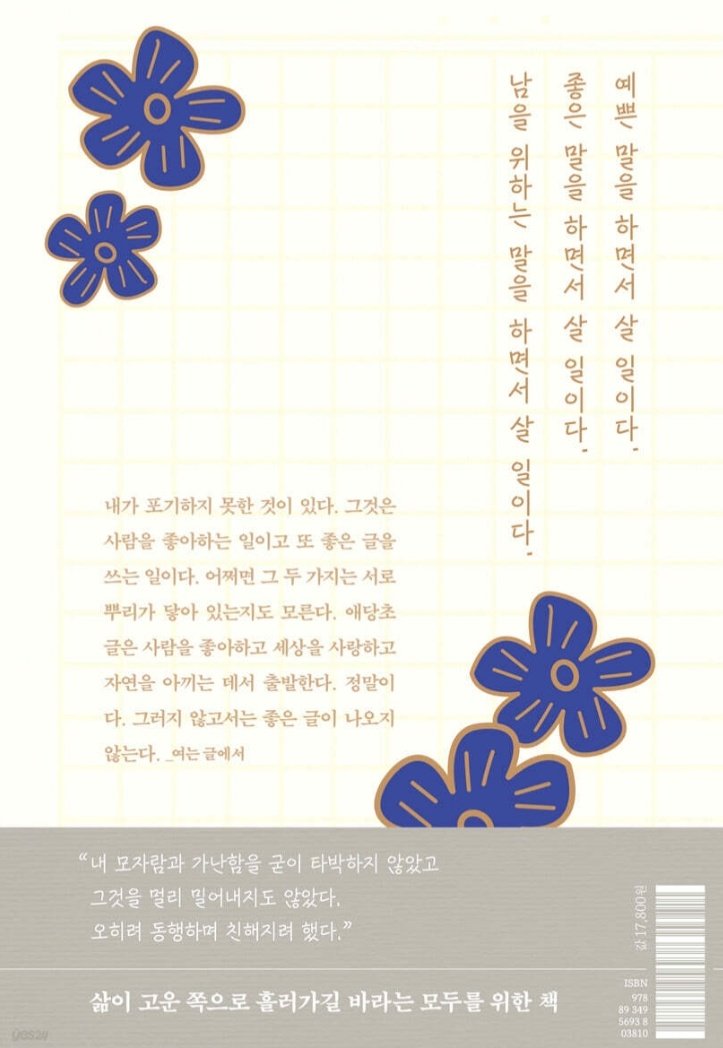 예쁜 말을 하면서 살 일이다.
좋은 말을 하면서 살 일이다.
남을 위하는 말을 하면서 살 일이다.
내가 포기하지 못한 것이 있다. 그것은
사람을 좋아하는 일이고 또 좋은 글을
쓰는 일이다. 어쩌면 그 두 가지는 서로
뿌리가 닿아 있는지도 모른다. 애당초
글은 사람을 좋아하고 세상을 사랑하고
자연을 아끼는 데서 출발한다. 정말이
다. 그러지 않고서는 좋은 글이 나오지
않는다. _여는 글에서
“내 모자람과 가난함을 굳이 타박하지 않았고
그것을 멀리 밀어내지도 않았다.
오히려 동행하며 친해지려 했다.”
삶이 고운 쪽으로 흘러가길 바라는 모두를 위한 책
값 17,800원
ISBN
978
89 349
5693 8
03810
yes24